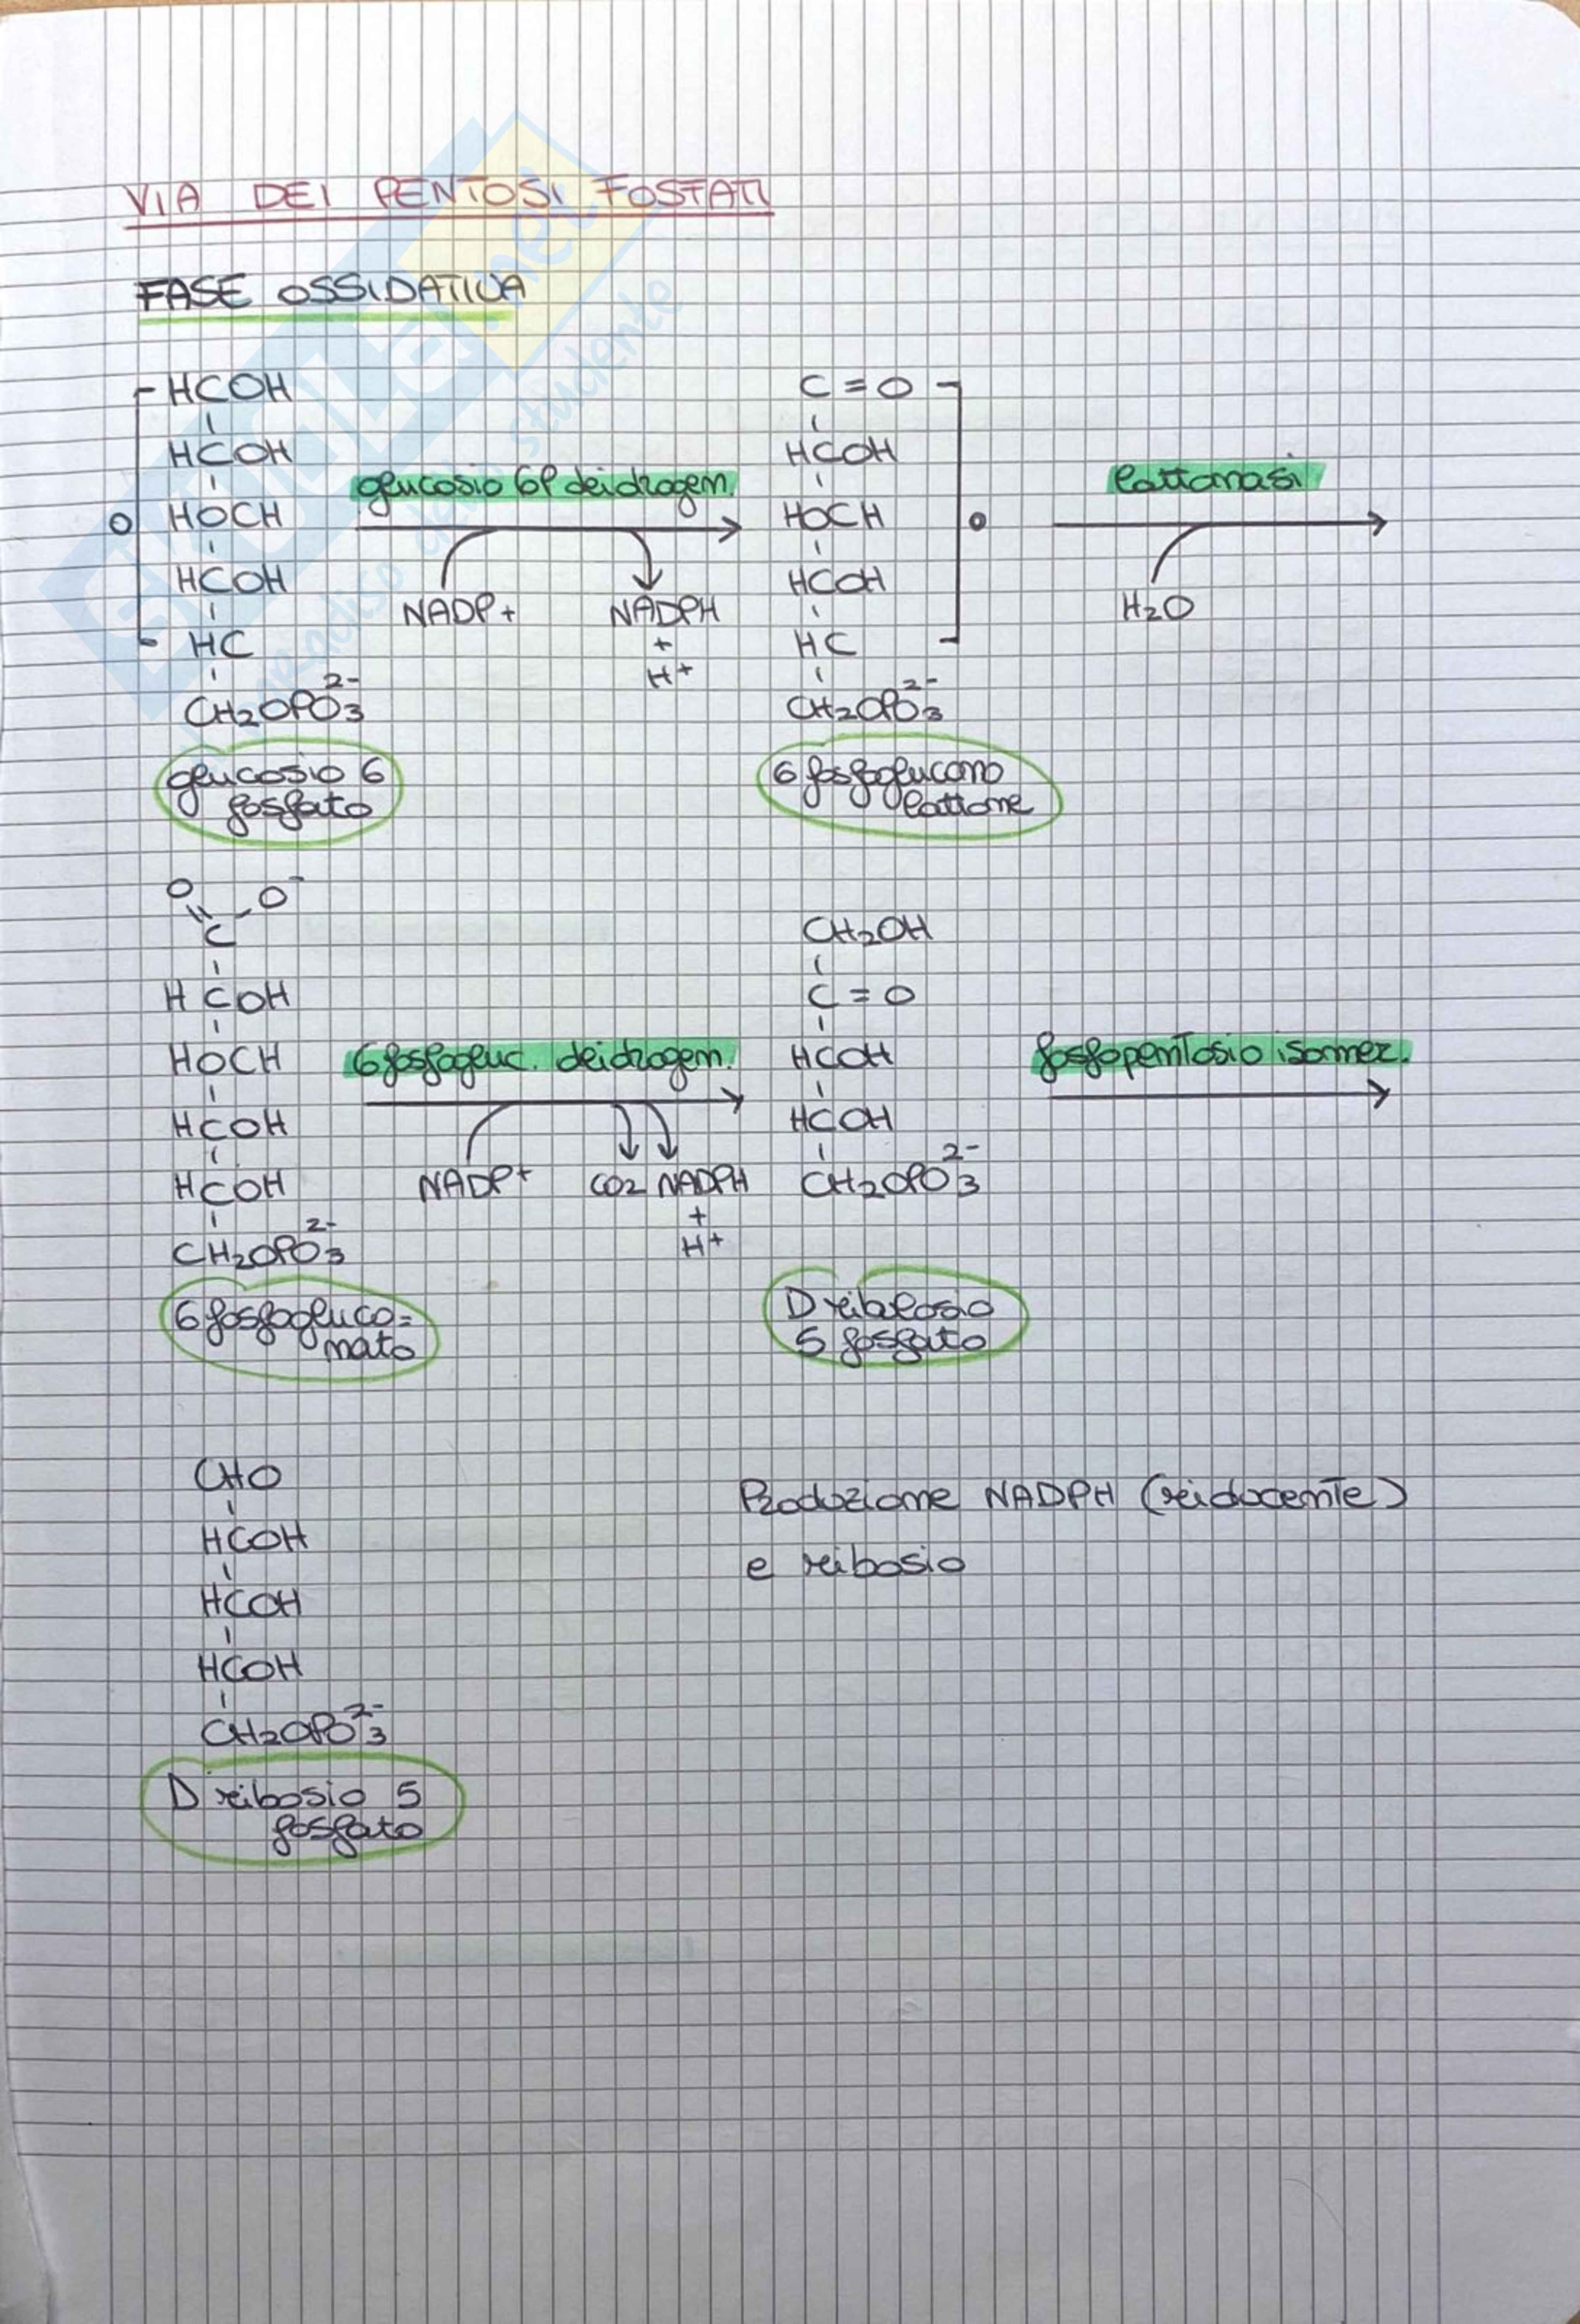 VIA DEI PENTOSI FOSFATI
FASE OSSIDATIVA
HCOH
HCOH
O HOCH
HCOH
HC
CH2OPO3 2-
glucosio 6
fosfato
glucosio 6P deidrogen.
NADP+
NADPH
+
H+
C = O
HCOH
HOCH O
HCOH
HC
CH2OPO3 2-
6 fosfoglucono
lattone
lattonasi
H2O
O O-
C
HCOH
HOCH
HCOH
HCOH
CH2OPO3 2-
6 fosfogluco=
nato
6 fosfogluc. deidrogen.
NADP+
CO2 NADPH
+
H+
CH2OH
C = O
HCOH
HCOH
CH2OPO3 2-
D ribulosio
5 fosfato
fosfopentosio isomer.
CHO
HCOH
HCOH
HCOH
CH2OPO3 2-
D ribosio 5
fosfato
Produzione NADPH (riducente)
e ribosio
SKUOLA.net
paradiso dello studente